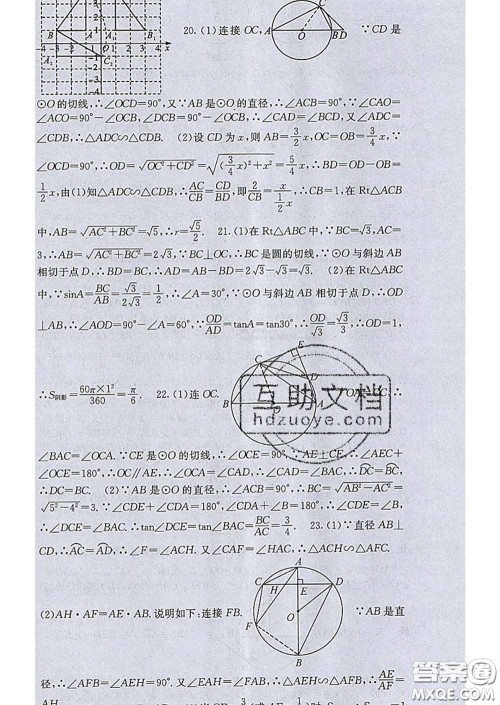 B A -1 1 B
-4 -3 -2 0 1 2 3 4 x
A₁ -2 C₂
-3
-4
20. (1)连接 OC, C A O B D ∵CD 是
⊙O 的切线,∴∠OCD=90°,又∵AB 是⊙O 的直径,∴∠ACB=90°,∵∠CAO=
∠ACO=90°-∠OCB,∠DCB=90°-∠OCB,∴∠CAD=∠BCD,又∠ADC=
∠CDB,∴△ADC∽△CDB. (2)设 CD 为 x,则 AB=3/2 x,OC=OB=3/4 x,∵
∠OCD=90°,∴OD=√(OC²+CD²)=√((3/4 x)²+x²)=5/4 x,∴BD=OD-OB=
1/2 x,由(1)知△ADC∽△CDB,∴AC/CB=CD/BD,即2/CB=x/(1/2 x),∴CB=1,在 Rt△ACB
中,AB=√(AC²+BC²)=√5,∴r=√5/2. 21. (1)在 Rt△ABC 中,∵BC=√3,AC=
3,∴AB=√(AC²+BC²)=2√3,∵BC⊥OC,∴BC 是圆的切线,∵⊙O 与斜边 AB
相切于点 D,∴BD=BC,∴AD=AB-BD=2√3-√3=√3. (2)在 Rt△ABC
中,∵sinA=BC/AB=√3/2√3=1/2,∴∠A=30°,∵⊙O 与斜边 AB 相切于点 D,∴OD
⊥AB,∴∠AOD=90°-∠A=60°,∵OD/AD=tanA=tan30°,∴OD/√3=√3/3,∴OD=1,
∴S阴影=60π×1²/360=π/6. 22. (1)连 OC. E C D B A
互助文档
hdzuoye.com
∠BAC=∠OCA. ∵CE 是⊙O 的切线,∴∠OCE=90°,∵AE⊥CE,∴∠AEC+
∠OCE=180°,∴OC∥AE,∴∠OCA=∠CAD,∴∠CAD=∠BAC,∴DC=BC,
∴DC=BC. (2)∵AB 是⊙O 的直径,∴∠ACB=90°,∴BC=√(AB²-AC²)=
√(5²-4²)=3. ∵∠CDE+∠CDA=180°,∠CDA+∠B=180°,∴∠CDE=∠B,
∴∠DCE=∠BAC. ∴tan∠DCE=tan∠BAC=BC/AC=3/4. 23. (1)∵直径 AB⊥
CD,∴AC=AD,∴∠F=∠ACH. 又∠CAF=∠HAC,∴△ACH∽△AFC.
(2)AH·AF=AE·AB. 说明如下:连接 FB. A C H E D O F B ∵AB 是直
径,∴∠AFB=∠AEH=90°. 又∠EAH=∠FAB,∴△AEH∽△AFB,∴AE/AF=
答案圈
MXQE.COM